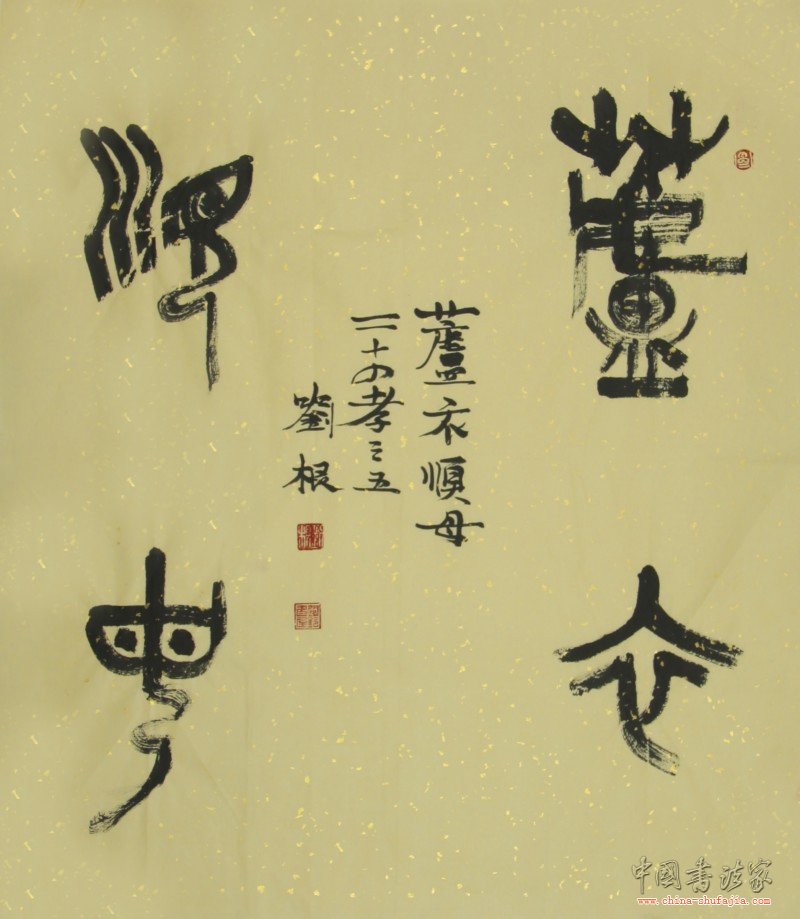 蘆衣
順母
蘆衣順母
二十四孝之五
劉根
中国书法家
www.china-shufajia.com